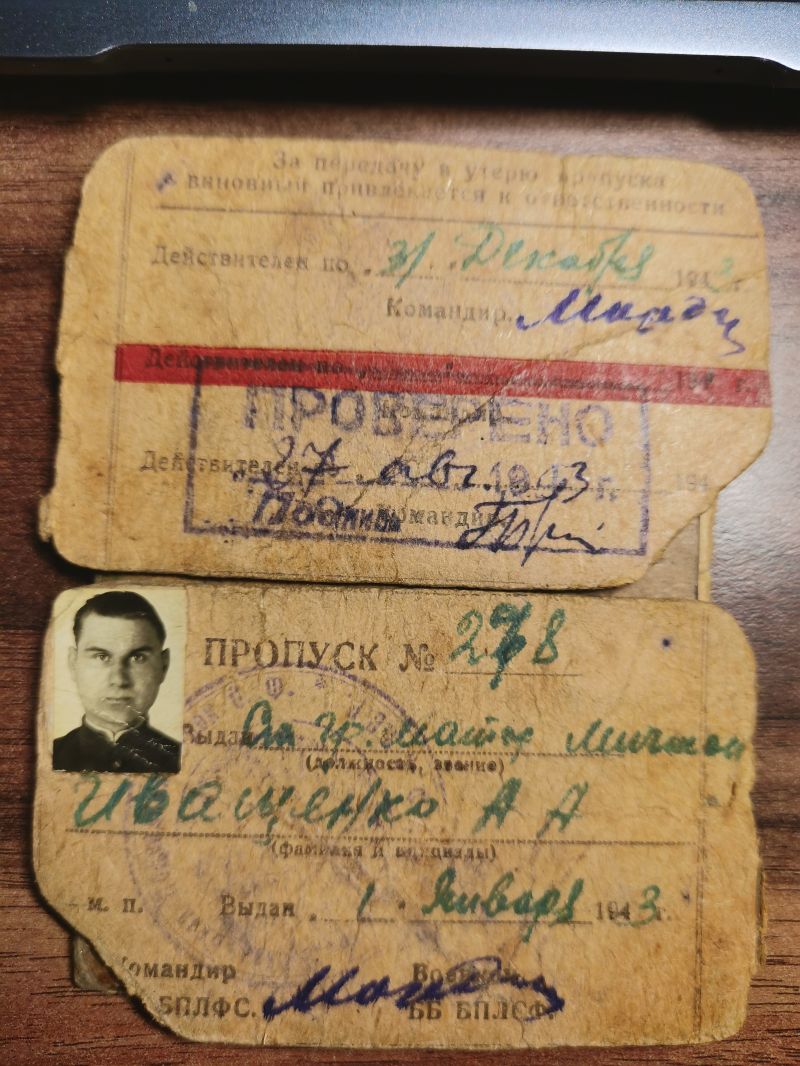 За передачу и утерю пропуска
виновный привлекается к ответственности
Действителен по 31 Декабря 1943 г.
Командир
Действителен по 194 г.
ПРОВЕРЕНО
Действителен 194
27 авг. 1943 г.
Подпись
Командир
ПРОПУСК № 278
Выдан гр. Мичман
(должность, звание)
Иващенко А А
(фамилия и инициалы)
м. п. Выдан 1 Января 1943 г.
Командир
БПЛФС. ББ БПЛСФ.